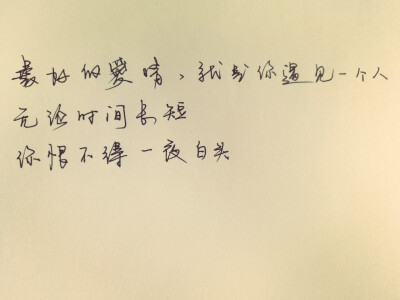 最好的愛情、就是你遇见一个人
无论时间长短
你恨不得一夜白头